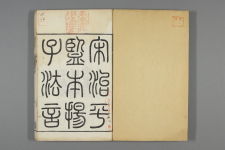 宋治平
監本揚
子法言